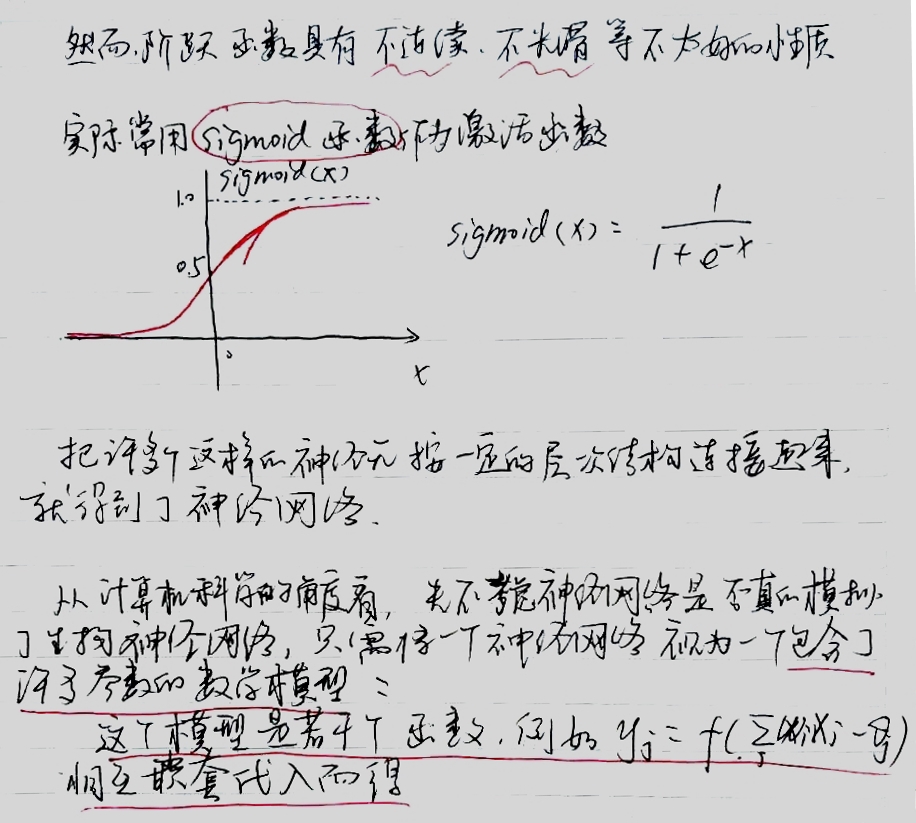 然而,阶跃函数具有不连续、不光滑等不太好的性质
实际常用sigmoid函数作为激活函数
sigmoid(x)
1.0
0.5
0
x
sigmoid(x) = 1 / (1 + e^-x)
把许多个这样的神经元按一定的层次结构连接起来,
就得到了神经网络.
从计算机科学的角度看,先不考虑神经网络是否真的模拟
了生物神经网络,只需将一个神经网络视为一个包含了
许多参数的数学模型:
这个模型是若干个函数,例如 y_j = f(∑_i w_i x_i - θ_j)
相互嵌套代入而得